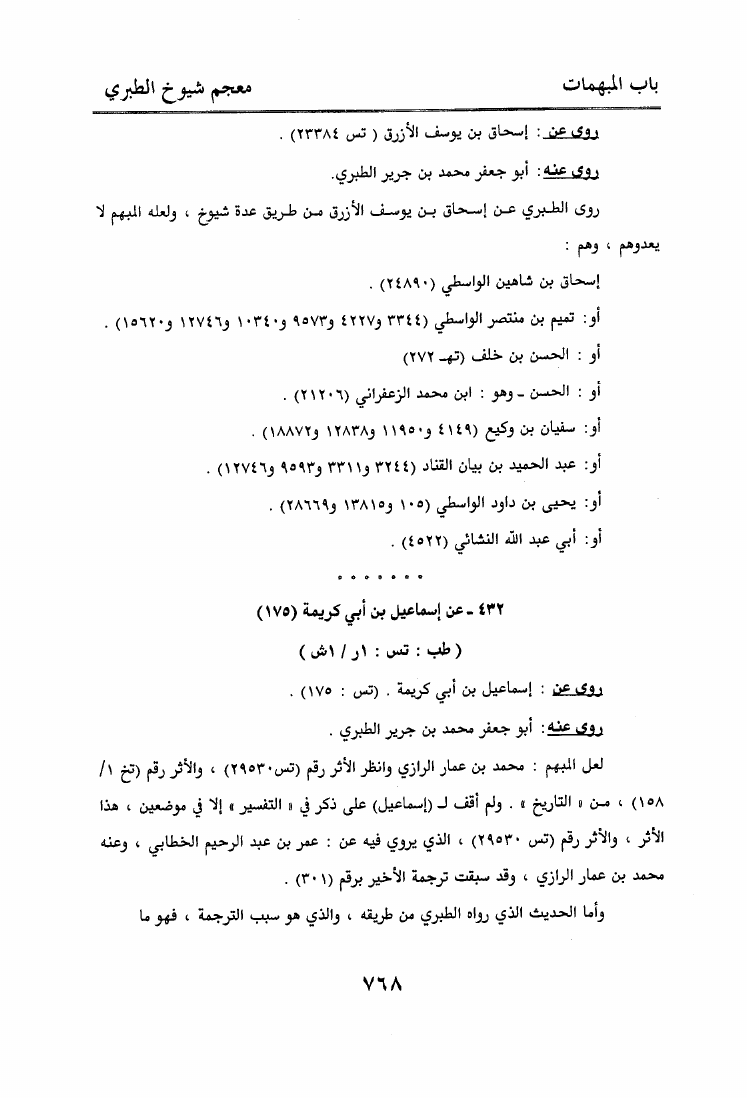 باب المبهمات
معجم شيوخ الطبري
روى عن : إسحاق بن يوسف الأزرق ( تس ٢٣٣٨٤) .
روى عنه: أبو جعفر محمد بن جرير الطبري.
روى الطبري عن إسحاق بن يوسف الأزرق من طريق عدة شيوخ ، ولعله المبهم لا
يعدوهم ، وهم :
إسحاق بن شاهين الواسطي (٢٤٨٩٠) .
أو: تميم بن منتصر الواسطي (٣٣٤٤ و٤٢٢٧ و٩٥٧٣ و١٠٣٤٠ و١٢٧٤٦ و١٥٦٢٠) .
أو : الحسن بن خلف (تهـ ٢٧٢)
أو : الحسن ـ وهو : ابن محمد الزعفراني (٢١٢٠٦) .
أو: سفيان بن وكيع (٤١٤٩ و١١٩٥٠ و١٢٨٣٨ و١٨٨٧٢) .
أو: عبد الحميد بن بيان القناد (٣٢٤٤ و٣٣١١ و٩٥٩٣ و١٢٧٤٦) .
أو: يحيى بن داود الواسطي (١٠٥ و١٣٨١٥ و٢٨٦٦٩) .
أو: أبي عبد الله النشائي (٤٥٢٢) .
* * * * * * *
٤٣٢ ـ عن إسماعيل بن أبي كريمة (١٧٥)
( طب : تس : ١ر / ١ش )
روى عن : إسماعيل بن أبي كريمة . (تس : ١٧٥) .
روى عنه: أبو جعفر محمد بن جرير الطبري .
لعل المبهم : محمد بن عمار الرازي وانظر الأثر رقم (تس٢٩٥٣٠) ، والأثر رقم (تخ ١/
١٥٨) ، من « التاريخ » . ولم أقف لـ (إسماعيل) على ذكر في « التفسير » إلا في موضعين ، هذا
الأثر ، والأثر رقم (تس ٢٩٥٣٠) ، الذي يروي فيه عن : عمر بن عبد الرحيم الخطابي ، وعنه
محمد بن عمار الرازي ، وقد سبقت ترجمة الأخير برقم (٣٠١) .
وأما الحديث الذي رواه الطبري من طريقه ، والذي هو سبب الترجمة ، فهو ما
٧٦٨